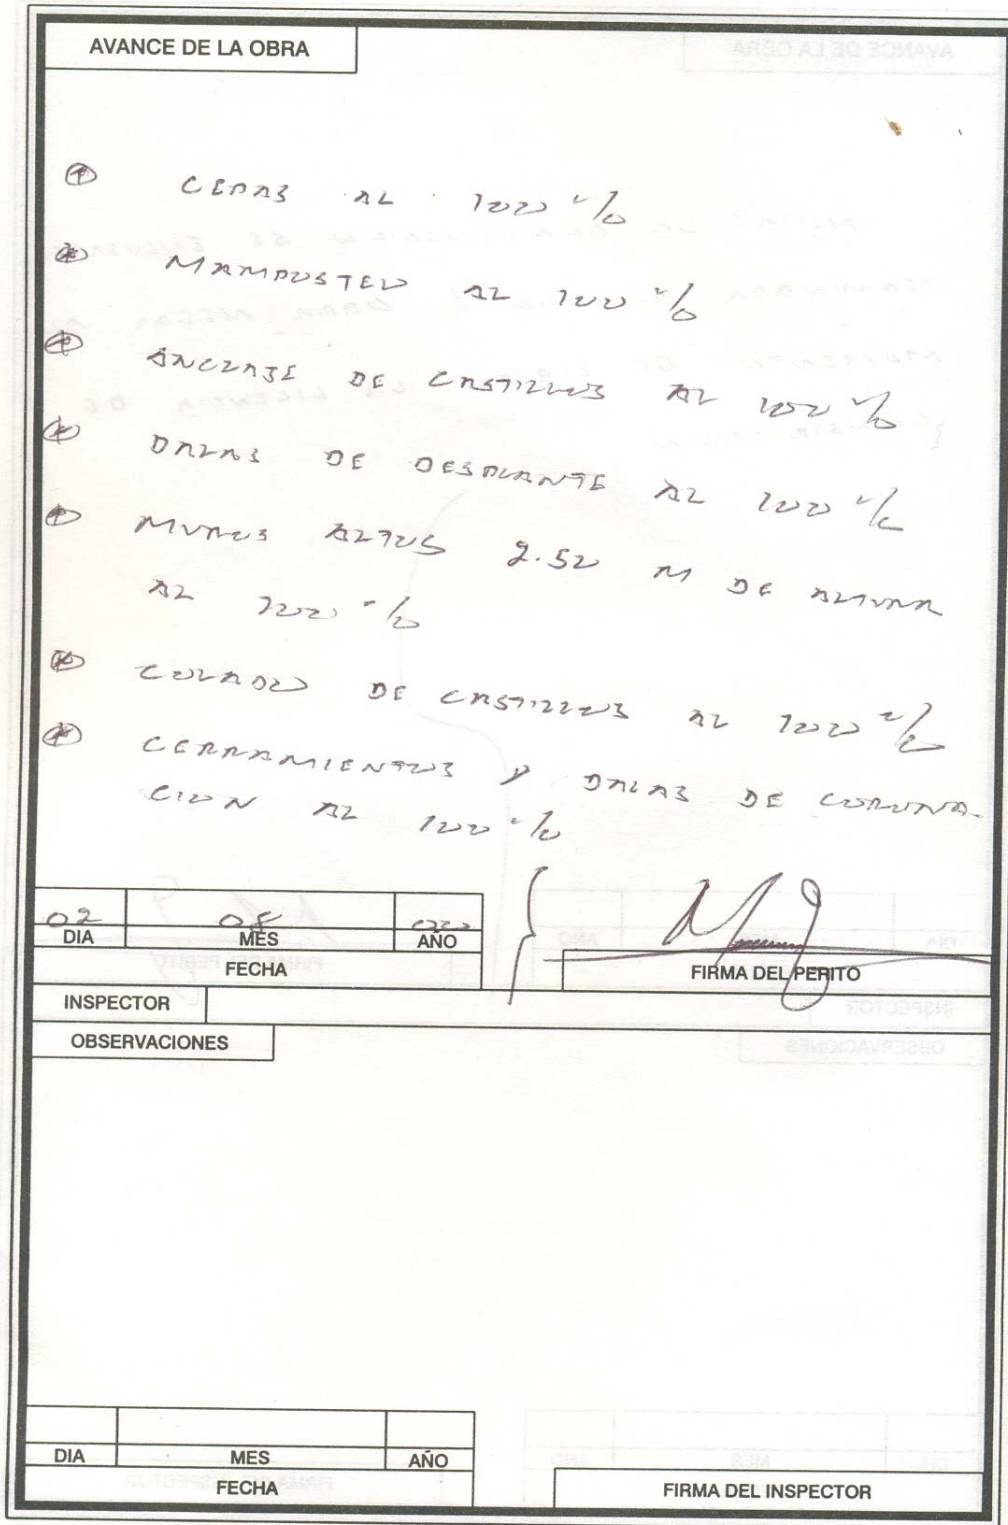 AVANCE DE LA OBRA
CEPAS AL 100 %
MAMPOSTEO AL 100 %
ANCLAJE DE CASTILLOS AL 100 %
DALAS DE DESPLANTE AL 100 %
MUROS ALTOS 2.50 M DE ALTURA
AL 100 %
COLADO DE CASTILLOS AL 100 %
CERRAMIENTOS Y DALAS DE CORONA-
CION AL 100 %
02 08
DIA MES AÑO
FECHA
FIRMA DEL PERITO
INSPECTOR
OBSERVACIONES
DIA MES AÑO
FECHA
FIRMA DEL INSPECTOR